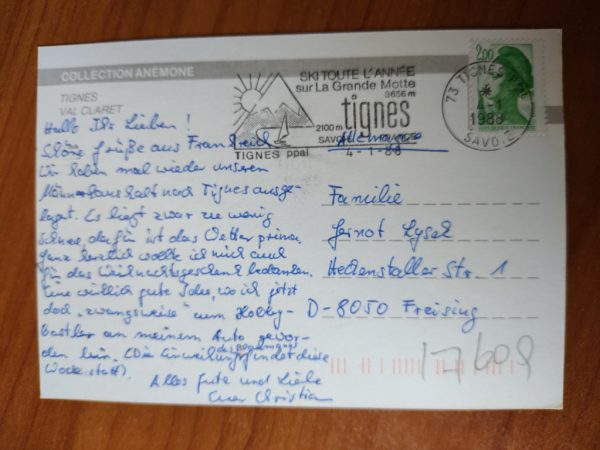 COLLECTION ANÉMONE
TIGNES
VAL CLARET
Hallo Ihr Lieben!
Schöne Grüße aus Frankreich
Wir haben mal wieder unseren
Männerhaushalt nach Tignes ausge-
lagert. Es liegt zwar zu wenig
Schnee, dafür ist das Wetter prima.
Ganz herzlich wollte ich mich auch
für das Weihnachtsgeschenk bedanken.
Eine wirklich gute Idee, wo ich jetzt
doch "zwangsweise" zum Hobby-
bastler an meinem Auto gewor-
den bin. (Die Einweihung des
findet diese
Woche statt).
Alles Gute und Liebe
Euer Christian
SKI TOUTE L'ANNÉE
sur La Grande Motte
3656 m
tignes
2100 m
SAVOIE FRANCE
TIGNES ppal
4-1-88
2,00
REPUBLIQUE FRANCAISE
73 TIGNES PPAL
4-1
1988
SAVOIE
Allemagne
Familie
Gernot Lysek
Hetzenstaller Str. 1
D-8050 Freising
17609